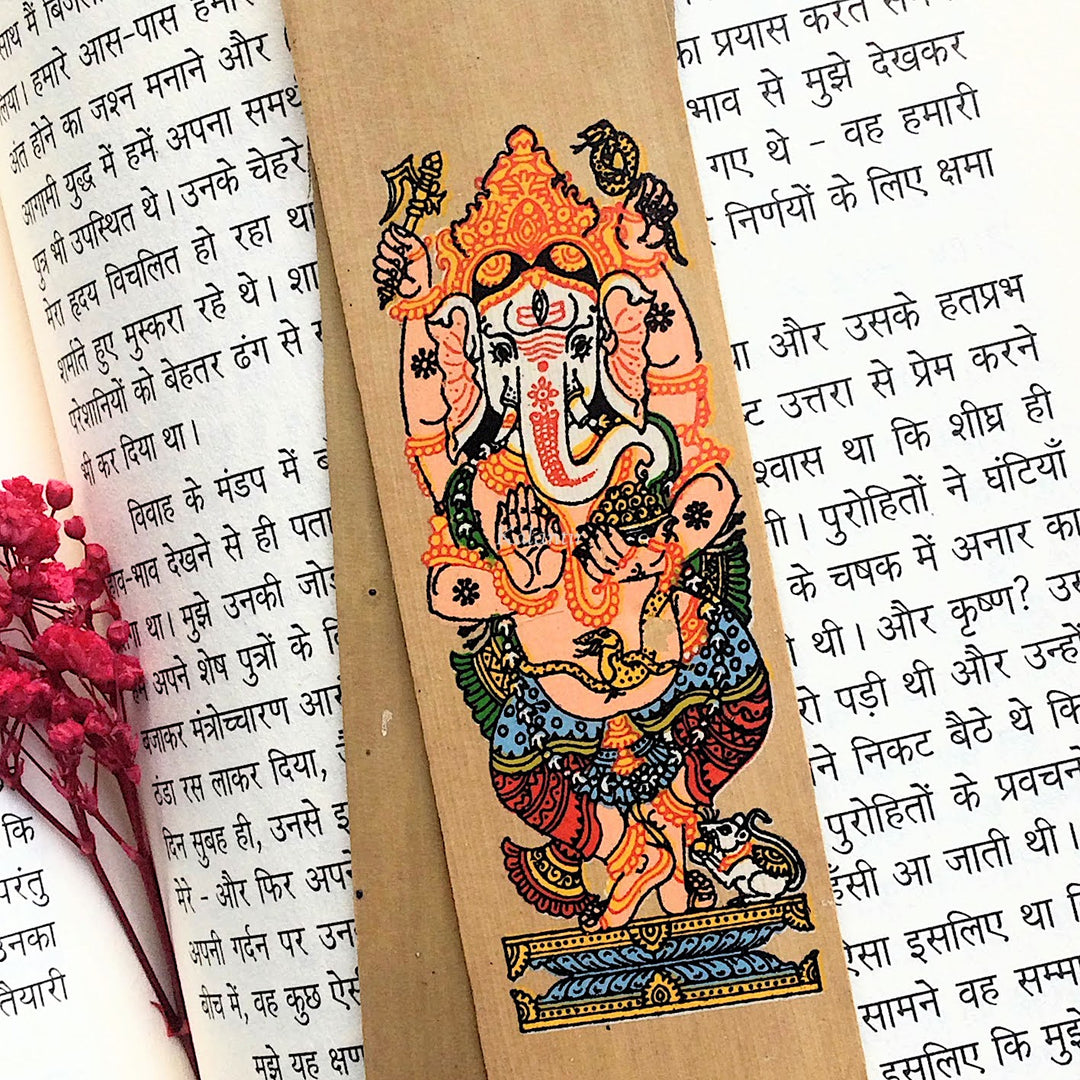 साथ मैं
हमारे आस-पास हमारे
लिया।
अंत होने का जश्न मनाने और
आगामी युद्ध में हमें अपना समर्थ
पुत्र भी उपस्थित थे। उनके चेहरे
मेरा हृदय विचलित हो रहा था
शर्माते हुए मुस्करा रहे थे।
परेशानियों को बेहतर ढंग से
भी कर दिया था।
विवाह के मंडप में
हाव-भाव देखने से ही पता
था। मुझे उनकी
अपने शेष पुत्रों के
बजाकर मंत्रोच्चारण
ठंडा रस लाकर दिया,
दिन सुबह ही, उनसे
मेरे - और फिर अपने
अपनी गर्दन पर उन
बीच में, वह कुछ ऐसे
मुझे यह क्षण
कि
परंतु
उनका
तैयारी
का प्रयास करते
भाव से मुझे देखकर
गए थे - वह हमारी
निर्णयों के लिए क्षमा
और उसके हतप्रभ
उत्तरा से प्रेम करने
कि शीघ्र ही
पुरोहितों ने घंटियाँ
के चषक में अनार का
थी। और कृष्ण?
पड़ी थी और उन्हें
निकट बैठे थे कि
पुरोहितों के प्रवचनों
हँसी आ जाती थी।
ऐसा इसलिए था
सामने वह
इसलिए कि मुझे